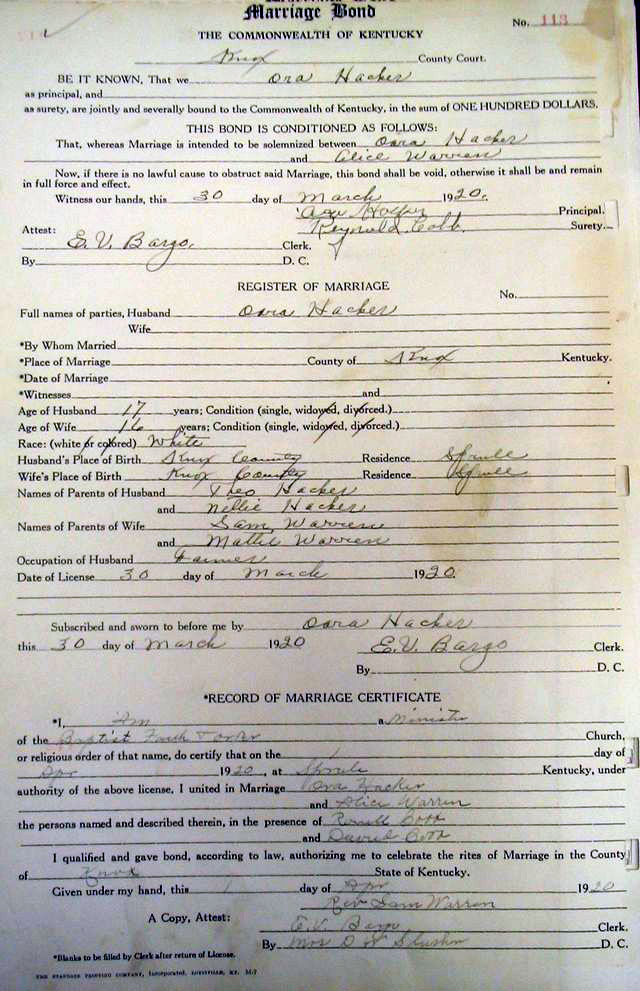 Marriage Bond
No. 113
THE COMMONWEALTH OF KENTUCKY
Knox County Court.
BE IT KNOWN, That we Ora Hacker
as principal, and
as surety, are jointly and severally bound to the Commonwealth of Kentucky, in the sum of ONE HUNDRED DOLLARS.
THIS BOND IS CONDITIONED AS FOLLOWS:
That, whereas Marriage is intended to be solemnized between Oara Hacker
and Alice Warren
Now, if there is no lawful cause to obstruct said Marriage, this bond shall be void, otherwise it shall be and remain
in full force and effect.
Witness our hands, this 30 day of March 1920.
Principal.
Attest: Cobb Surety.
E. V. Bargo, Clerk.
By D. C.
REGISTER OF MARRIAGE
No.
Full names of parties, Husband Oara Hacker
Wife
*By Whom Married
*Place of Marriage County of Knox Kentucky.
*Date of Marriage
*Witnesses and
Age of Husband 17 years; Condition (single, widowed, divorced.)
Age of Wife 16 years; Condition (single, widowed, divorced.)
Race: (white or colored) White
Husband's Place of Birth Knox County Residence Sprule
Wife's Place of Birth Knox County Residence Sprule
Names of Parents of Husband Theo Hacker
and Nellie Hacker
Names of Parents of Wife Sam Warren
and Mattie Warren
Occupation of Husband Farmer
Date of License 30 day of March 1920.
Subscribed and sworn to before me by Oara Hacker
this 30 day of March 1920 E. V. Bargo Clerk.
By D. C.
*RECORD OF MARRIAGE CERTIFICATE
*I, a Minister
of the Baptist Church,
or religious order of that name, do certify that on the 1 day of
Apr 1920, at Sprule Kentucky, under
authority of the above license, I united in Marriage Ora Hacker
and Alice Warren
the persons named and described therein, in the presence of Cobb
and David Cobb
I qualified and gave bond, according to law, authorizing me to celebrate the rites of Marriage in the County
of Knox State of Kentucky.
Given under my hand, this 1 day of Apr. 1920
Rev Sam Warren
A Copy, Attest: E. V. Bargo Clerk.
By Mrs D. C.
*Blanks to be filled by Clerk after return of License.
THE STANDARD PRINTING COMPANY, Incorporated, LOUISVILLE, KY.